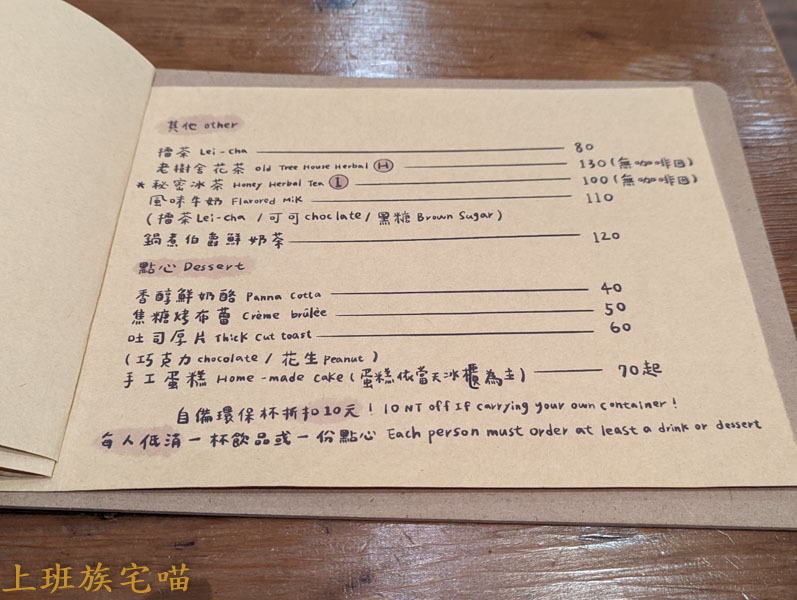 其他 other
擂茶 Lei-cha 80
老樹舍花茶 Old Tree House Herbal H 130(無咖啡因)
*秘密冰茶 Honey Herbal Tea I 100(無咖啡因)
風味牛奶 Flarored Milk 110
(擂茶Lei-cha /可可choclate/黑糖Brown Sugar)
鍋煮伯爵鮮奶茶 120
點心 Dessert
香醇鮮奶酪 Panna Cotta 40
焦糖烤布蕾 Crème brûlée 50
吐司厚片 Thick Cut toast 60
(巧克力chocolate / 花生peanut)
手工蛋糕 Home-made cake(蛋糕依當天冰櫃為主) 70起
自備環保杯折扣10元! 10 NT off If carrying your own container!
每人低消一杯飲品或一份點心 Each person must order at least a drink or dessert
上班族宅喵